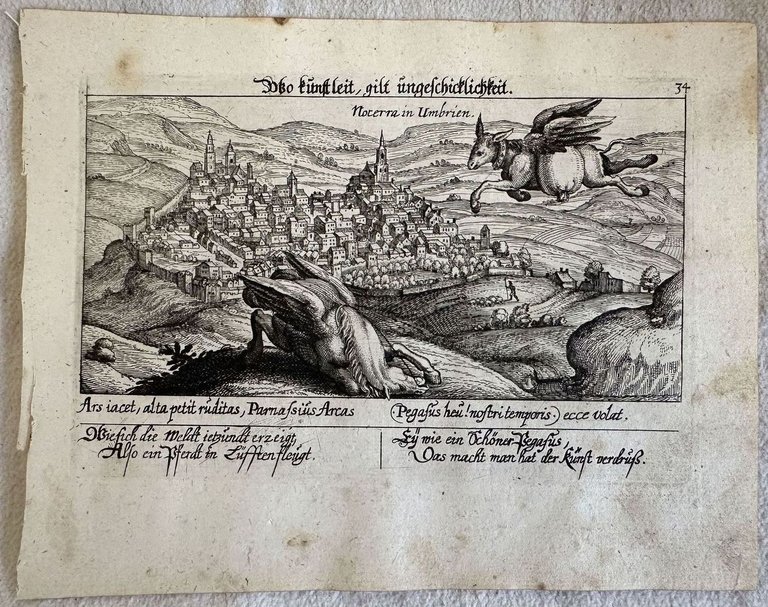 Wo kunst leit, gilt ungeschicklichkeit.
34
Nocerra in Umbrien.
Ars iacet, alta petit ruditas, Parnassius Arcas
(Pegasus heu! nostri temporis.) ecce volat.
Wie sich die Weldt ietzundt erzeigt,
Also ein Pferdt in Lüfften fleugt.
Eÿ wie ein Schöner Pegasus,
Das macht man hat der Kunst verdruß.